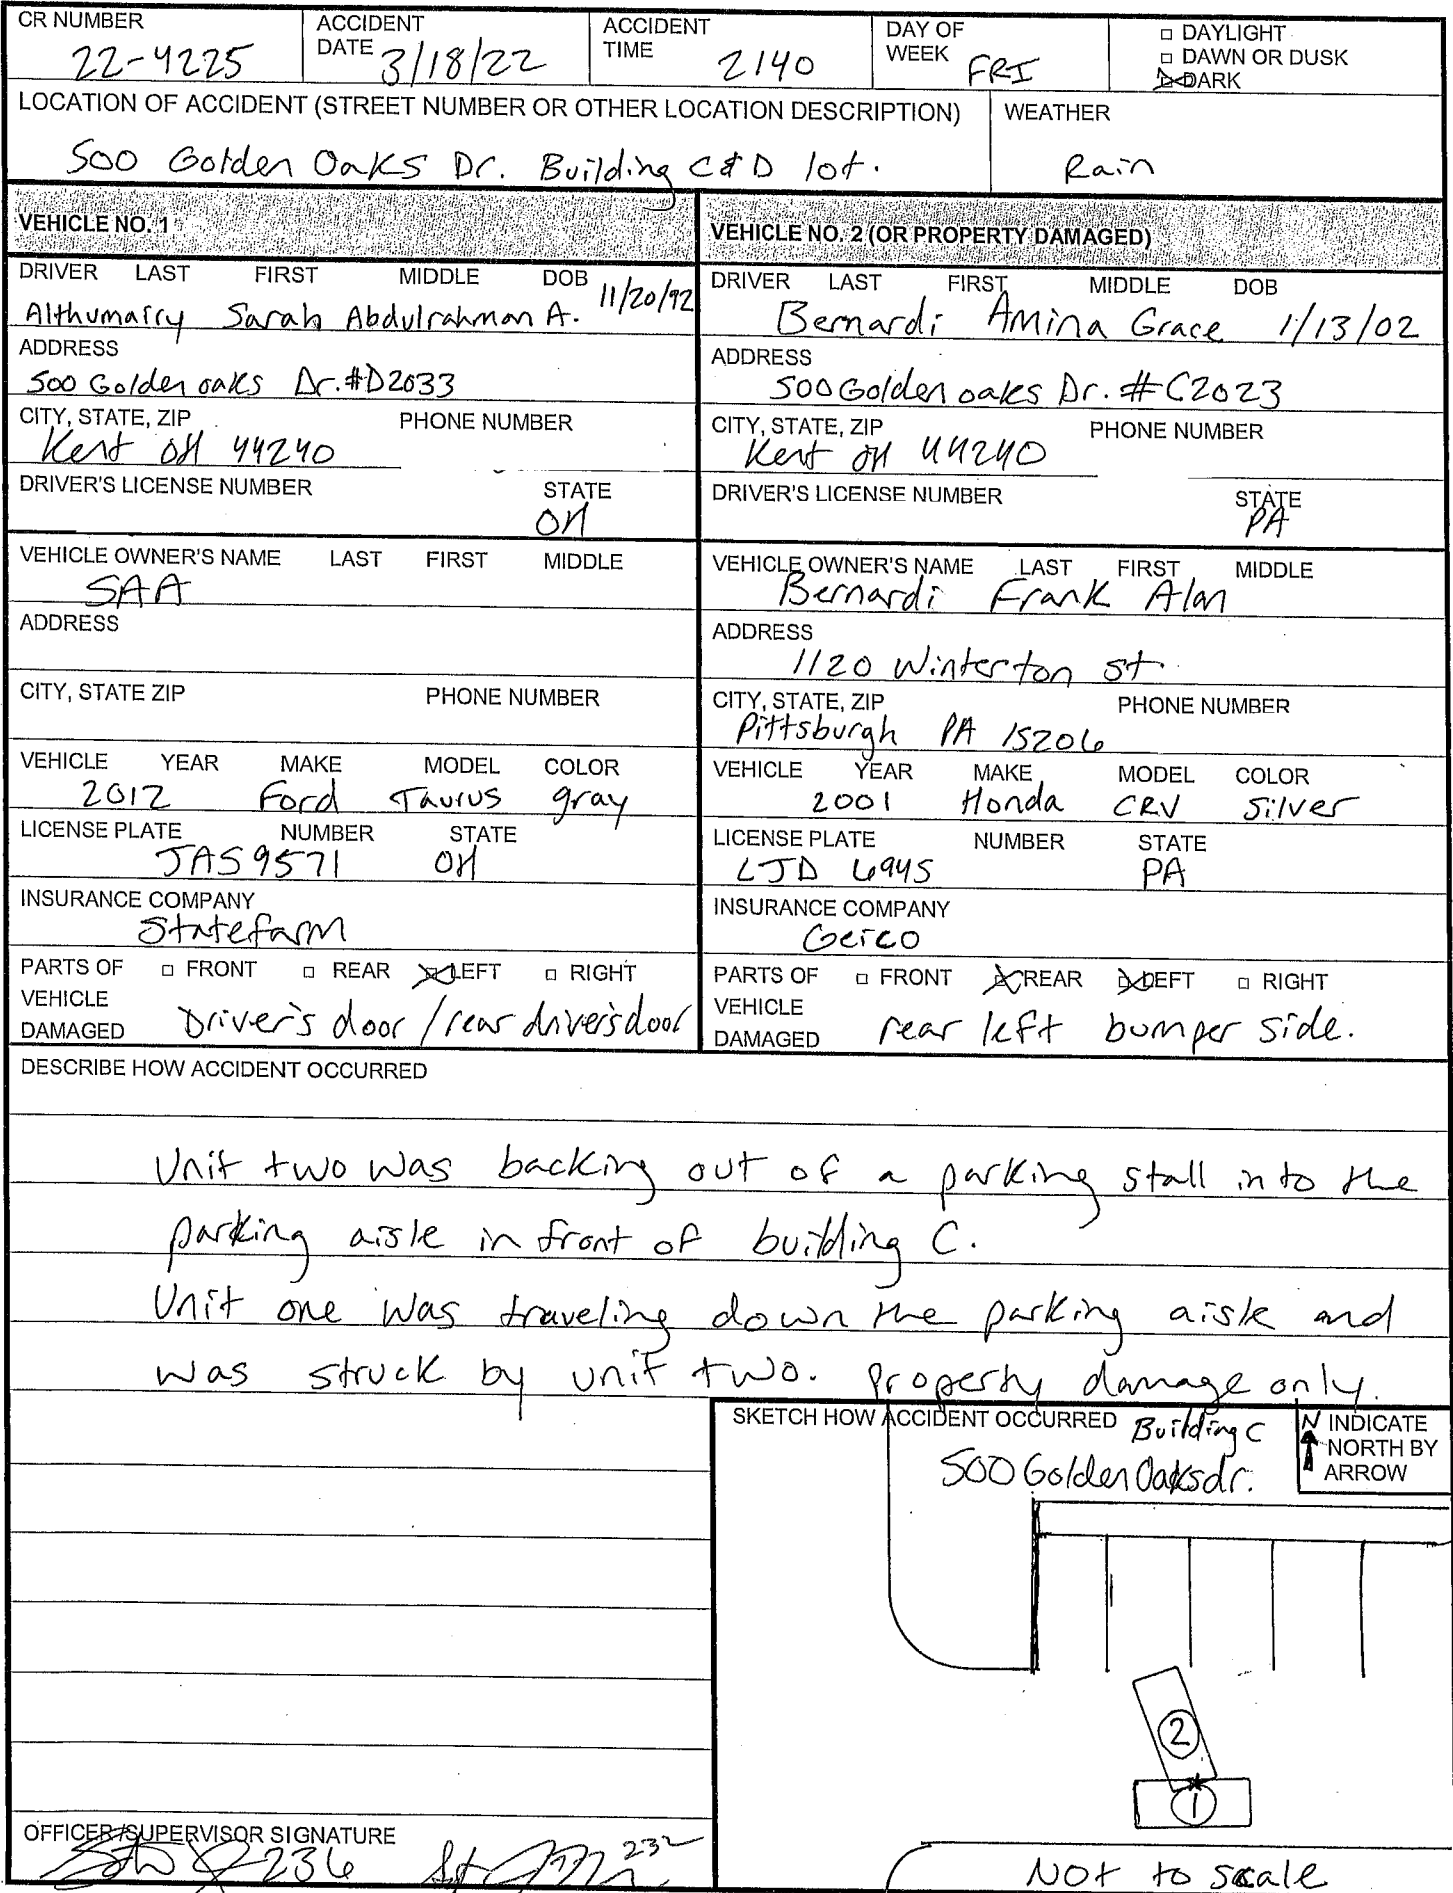 CR NUMBER ACCIDENT DATE ACCIDENT TIME DAY OF WEEK □ DAYLIGHT
□ DAWN OR DUSK
22-4225 3/18/22 2140 FRI ☒ DARK
LOCATION OF ACCIDENT (STREET NUMBER OR OTHER LOCATION DESCRIPTION) WEATHER
500 Golden Oaks Dr. Building C & D lot. Rain
VEHICLE NO. 1
DRIVER LAST FIRST MIDDLE DOB
Sarah Abdulrahman A. 11/20/92
ADDRESS
500 Golden oaks Dr. #D2033
CITY, STATE, ZIP PHONE NUMBER
Kent OH 44240
DRIVER'S LICENSE NUMBER STATE
OH
VEHICLE OWNER'S NAME LAST FIRST MIDDLE
SAA
ADDRESS
CITY, STATE ZIP PHONE NUMBER
VEHICLE YEAR MAKE MODEL COLOR
2012 Ford Taurus gray
LICENSE PLATE NUMBER STATE
JAS9571 OH
INSURANCE COMPANY
Statefarm
PARTS OF VEHICLE DAMAGED □ FRONT □ REAR ☒ LEFT □ RIGHT
Driver's door / rear driver's door
VEHICLE NO. 2 (OR PROPERTY DAMAGED)
DRIVER LAST FIRST MIDDLE DOB
Bernardi Amina Grace 1/13/02
ADDRESS
500 Golden oaks Dr. # C2023
CITY, STATE, ZIP PHONE NUMBER
Kent OH 44240
DRIVER'S LICENSE NUMBER STATE
PA
VEHICLE OWNER'S NAME LAST FIRST MIDDLE
Bernardi Frank Alan
ADDRESS
1120 Winterton st.
CITY, STATE, ZIP PHONE NUMBER
Pittsburgh PA 15206
VEHICLE YEAR MAKE MODEL COLOR
2001 Honda CRV Silver
LICENSE PLATE NUMBER STATE
LJD 6945 PA
INSURANCE COMPANY
Geico
PARTS OF VEHICLE DAMAGED □ FRONT ☒ REAR ☒ LEFT □ RIGHT
rear left bumper side.
DESCRIBE HOW ACCIDENT OCCURRED
Unit two was backing out of a parking stall into the
parking aisle in front of building C.
Unit one was traveling down the parking aisle and
was struck by unit two. Property damage only.
SKETCH HOW ACCIDENT OCCURRED Building C
500 Golden Oaks dr.
N INDICATE
NORTH BY
ARROW
2
1
Not to scale
OFFICER/SUPERVISOR SIGNATURE
236 232